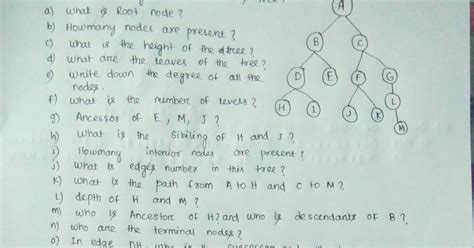 a) what is Root node ?
b) Howmany nodes are present ?
c) what is the height of the tree ?
d) what are the leaves of the tree ?
e) write down the degree of all the
nodes.
f) what is the number of levels ?
g) Ancestor of E, M, J ?
h) what is the sibiling of H and J ?
i) Howmany interior nodes are present ?
j) what is edges number in this tree ?
k) what is the path from A to H and C to M ?
l) depth of H and M ?
m) who is Ancestor of H? and who is descendants of B ?
n) who are the terminal nodes ?
o) In edge
A
B
C
D
E
F
G
H
I
J
K
L
M